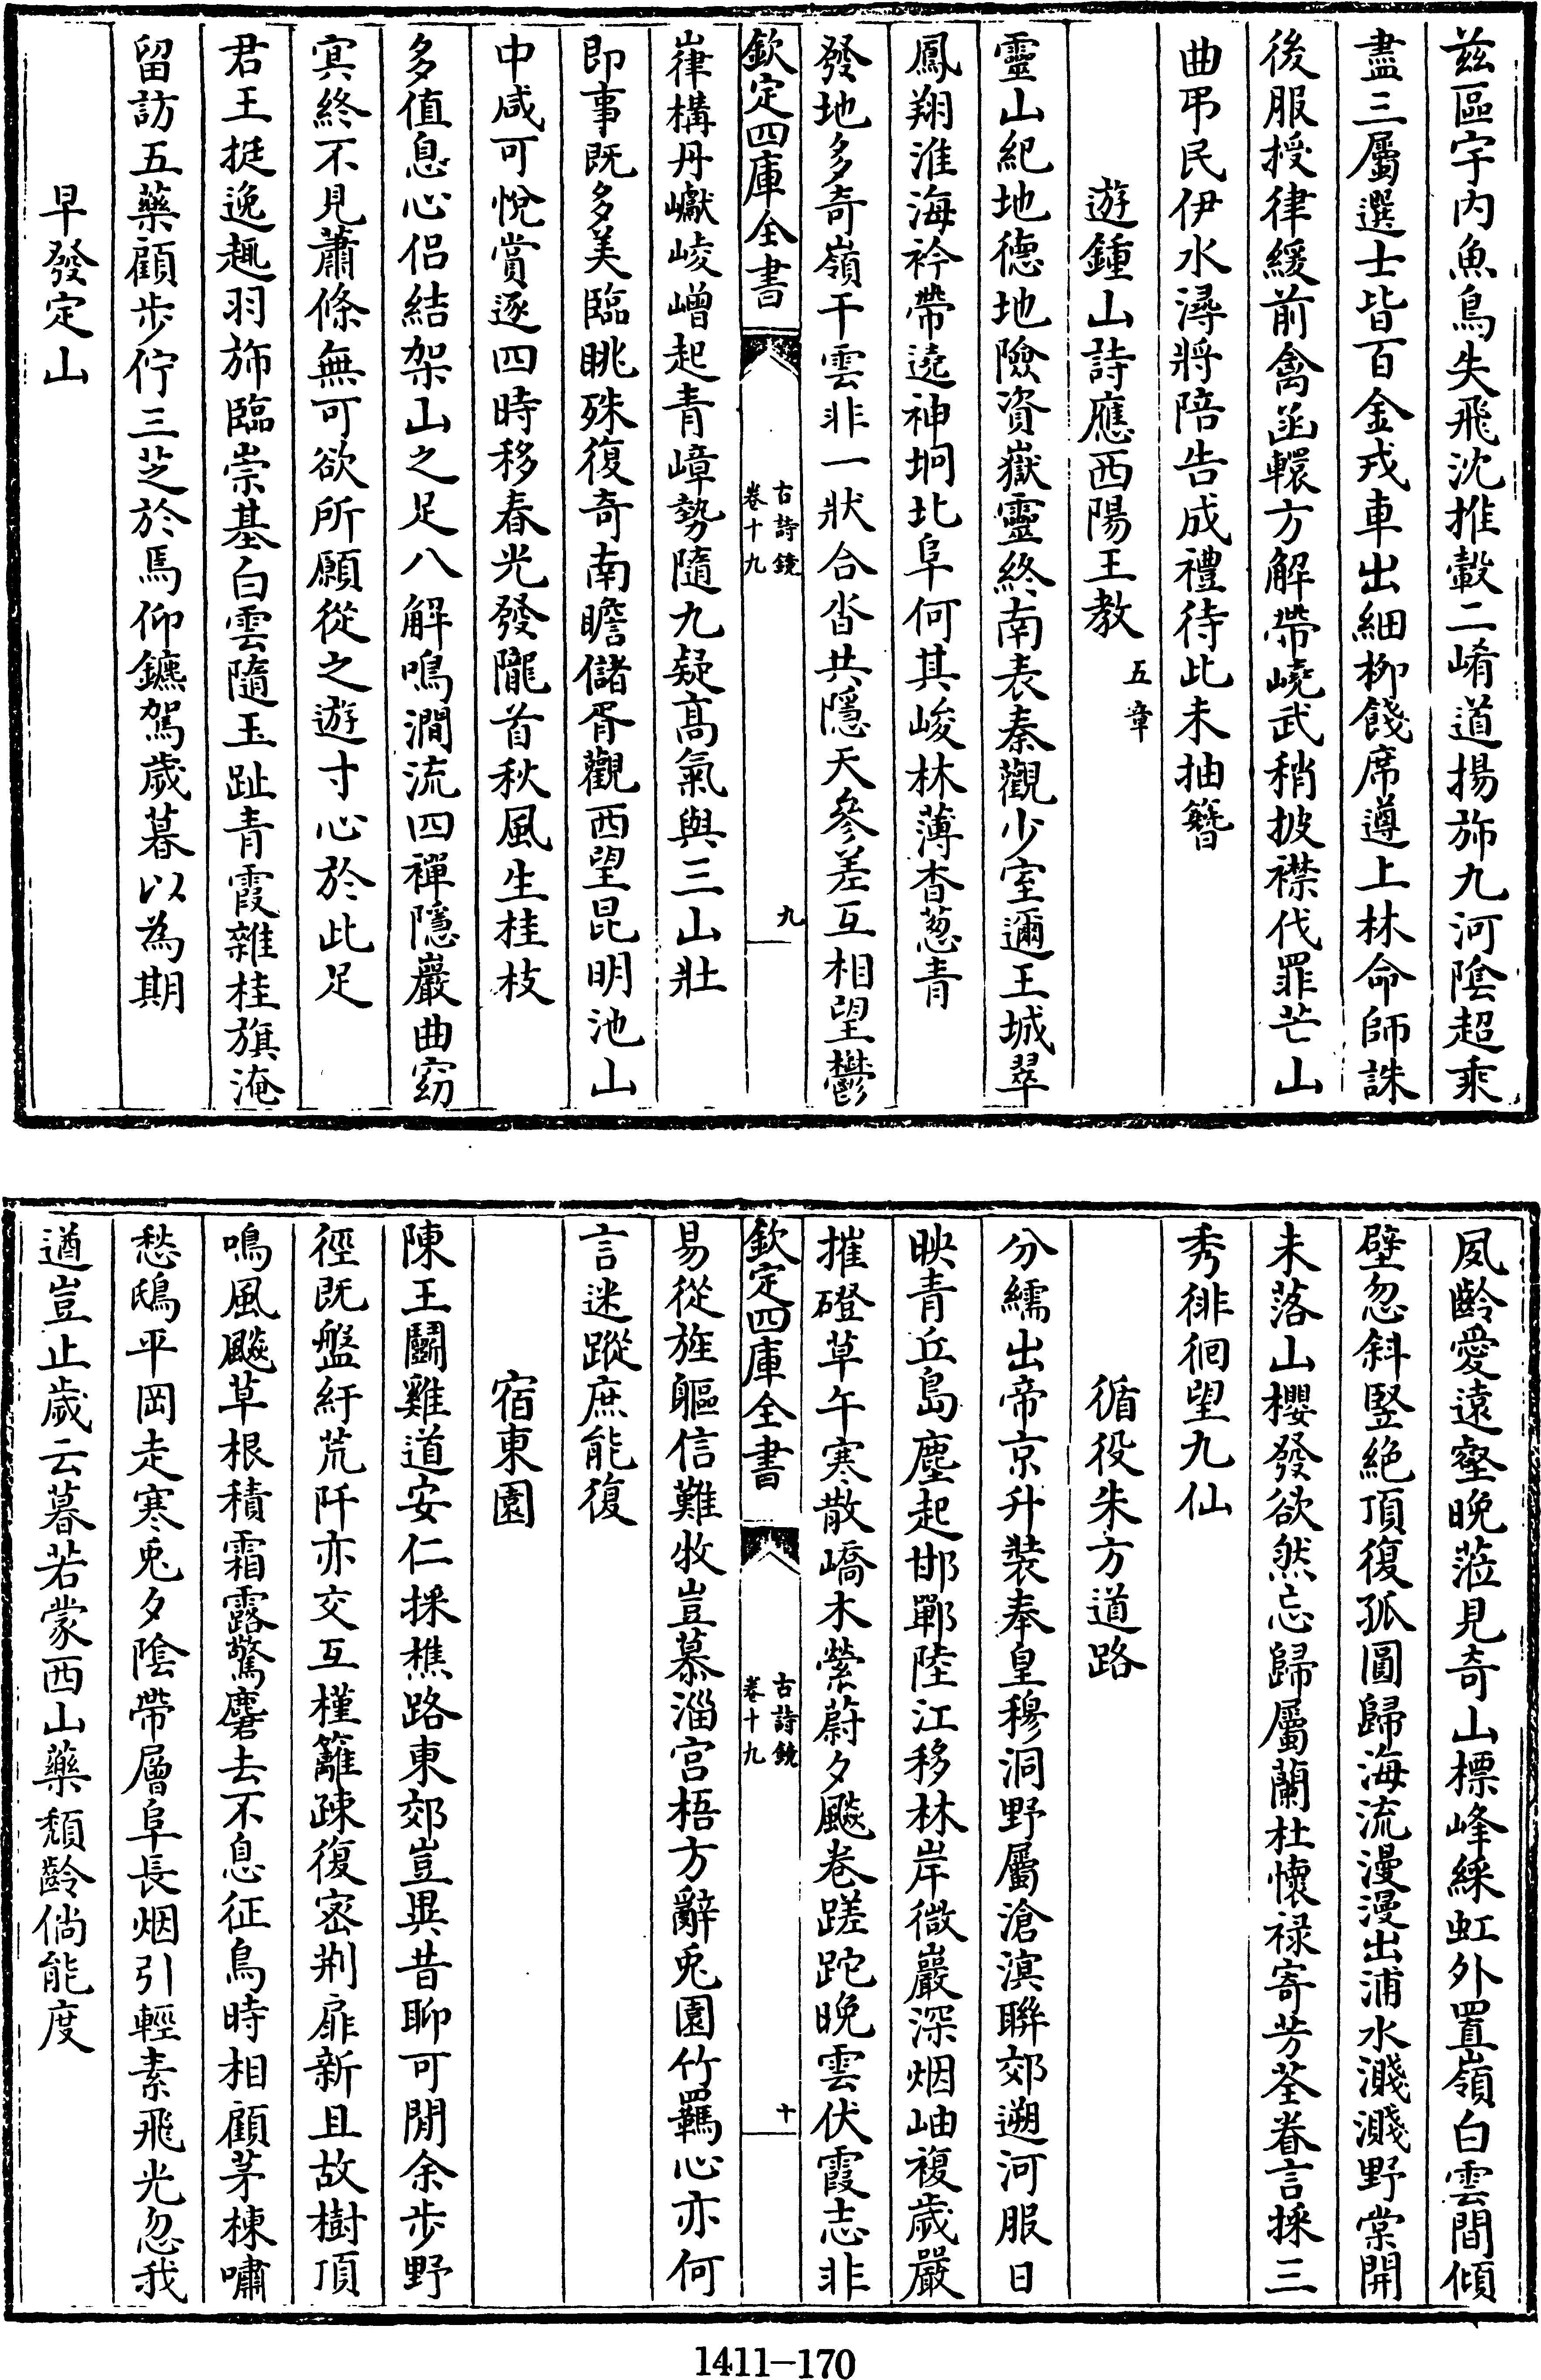 兹區宇内魚鳥失飛沈推轂二崤道揚斾九河陰超乘
盡三屬選士皆百金戎車出細栁餞席遵上林命師誅
後服授律緩前禽函轘方解帶嶢武稍披襟伐罪芒山
曲弔民伊水潯將陪告成禮待此未抽簪
遊鍾山詩應西陽王教 五章
靈山紀地德地險資嶽靈終南表秦觀少室邇王城翠
鳳翔淮海衿帶遶神坰北阜何其峻林薄杳葱青
發地多奇嶺干雲非一狀合沓共隱天參差互相望鬱
欽定四庫全書 古詩鏡 卷十九 九
嵂構丹巘崚嶒起青嶂勢隨九疑髙氣與三山壯
即事既多美臨眺殊復奇南瞻儲胥觀西望昆明池山
中咸可悦賞逐四時移春光發隴首秋風生桂枝
多值息心侣結架山之足八解鳴澗流四禪隱巖曲窈
㝠終不見蕭條無可欲所願從之遊寸心於此足
君王挺逸趣羽斾臨崇基白雲隨玉趾青霞雜桂旗淹
留訪五藥顧步佇三芝於焉仰鑣駕歲暮以為期
早發定山
夙齡愛遠壑晚蒞見奇山標峰綵虹外置嶺白雲間傾
壁忽斜竪絶頂復孤圓歸海流漫漫出浦水濺濺野棠開
未落山櫻發欲然忘歸屬蘭杜懷禄寄芳荃眷言採三
秀徘徊望九仙
循役朱方道路
分繻出帝京升裝奉皇穆洞野屬滄溟聯郊遡河服日
映青丘島塵起邯鄲陸江移林岸微巖深烟岫複歲嚴
摧磴草午寒散嶠木縈蔚夕飈卷蹉跎晚雲伏霞志非
欽定四庫全書 古詩鏡 卷十九 十
易從旌軀信難牧豈慕淄宫梧方辭兎園竹羈心亦何
言迷蹤庶能復
宿東園
陳王鬭雞道安仁採樵路東郊豈異昔聊可閒余步野
徑既盤紆荒阡亦交互槿籬疎復宻荆扉新且故樹頂
鳴風飈草根積霜露驚麏去不息征鳥時相顧茅棟嘯
愁鴟平岡走寒兎夕陰帶層阜長烟引輕素飛光忽我
遒豈止歲云暮若蒙西山藥頽齡倘能度
1411-170